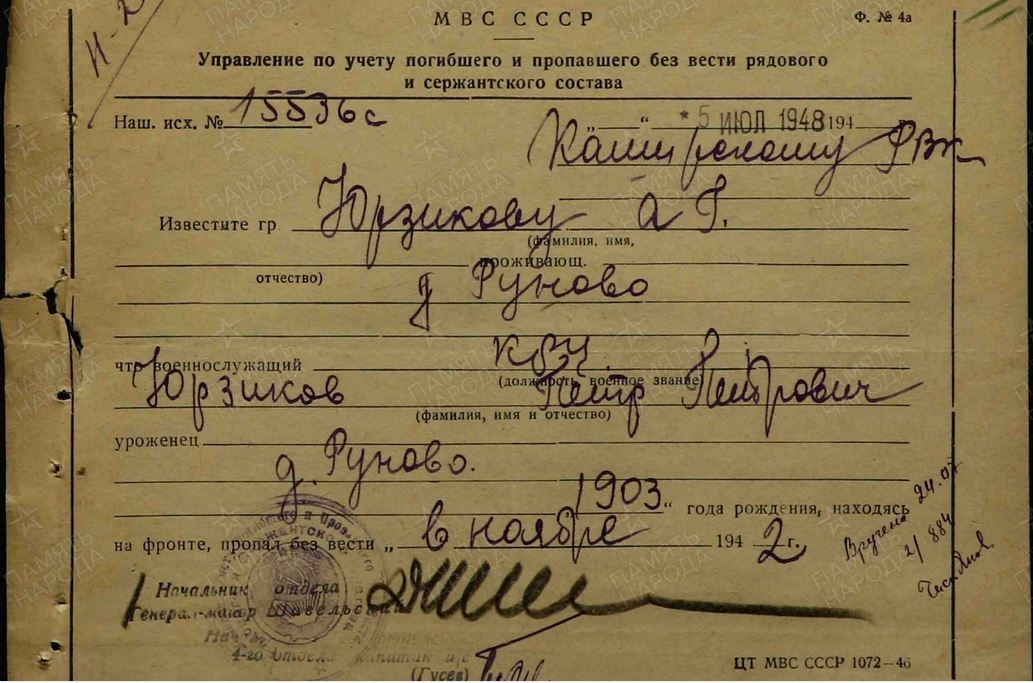 И-2
МВС СССР
Ф. № 4а
Управление по учету погибшего и пропавшего без вести рядового
и сержантского состава
Наш. исх. № 15536с
„ “ * 5 ИЮЛ 1948 194
Каширскому РВК
Известите гр. Юрзикову А Г.
(фамилия, имя,
проживающ.
отчество)
д Руново
что военнослужащий
(должность, военное звание)
Юрзиков Петр Петрович
(фамилия, имя и отчество)
уроженец
д. Руново.
1903 “ года рождения, находясь
на фронте, пропал без вести „ в ноябре 1942 г.
Вручено 24.07
Начальник отдела
Генерал-майор
4-го отдела капитан
(Гусев)
ЦТ МВС СССР 1072—46